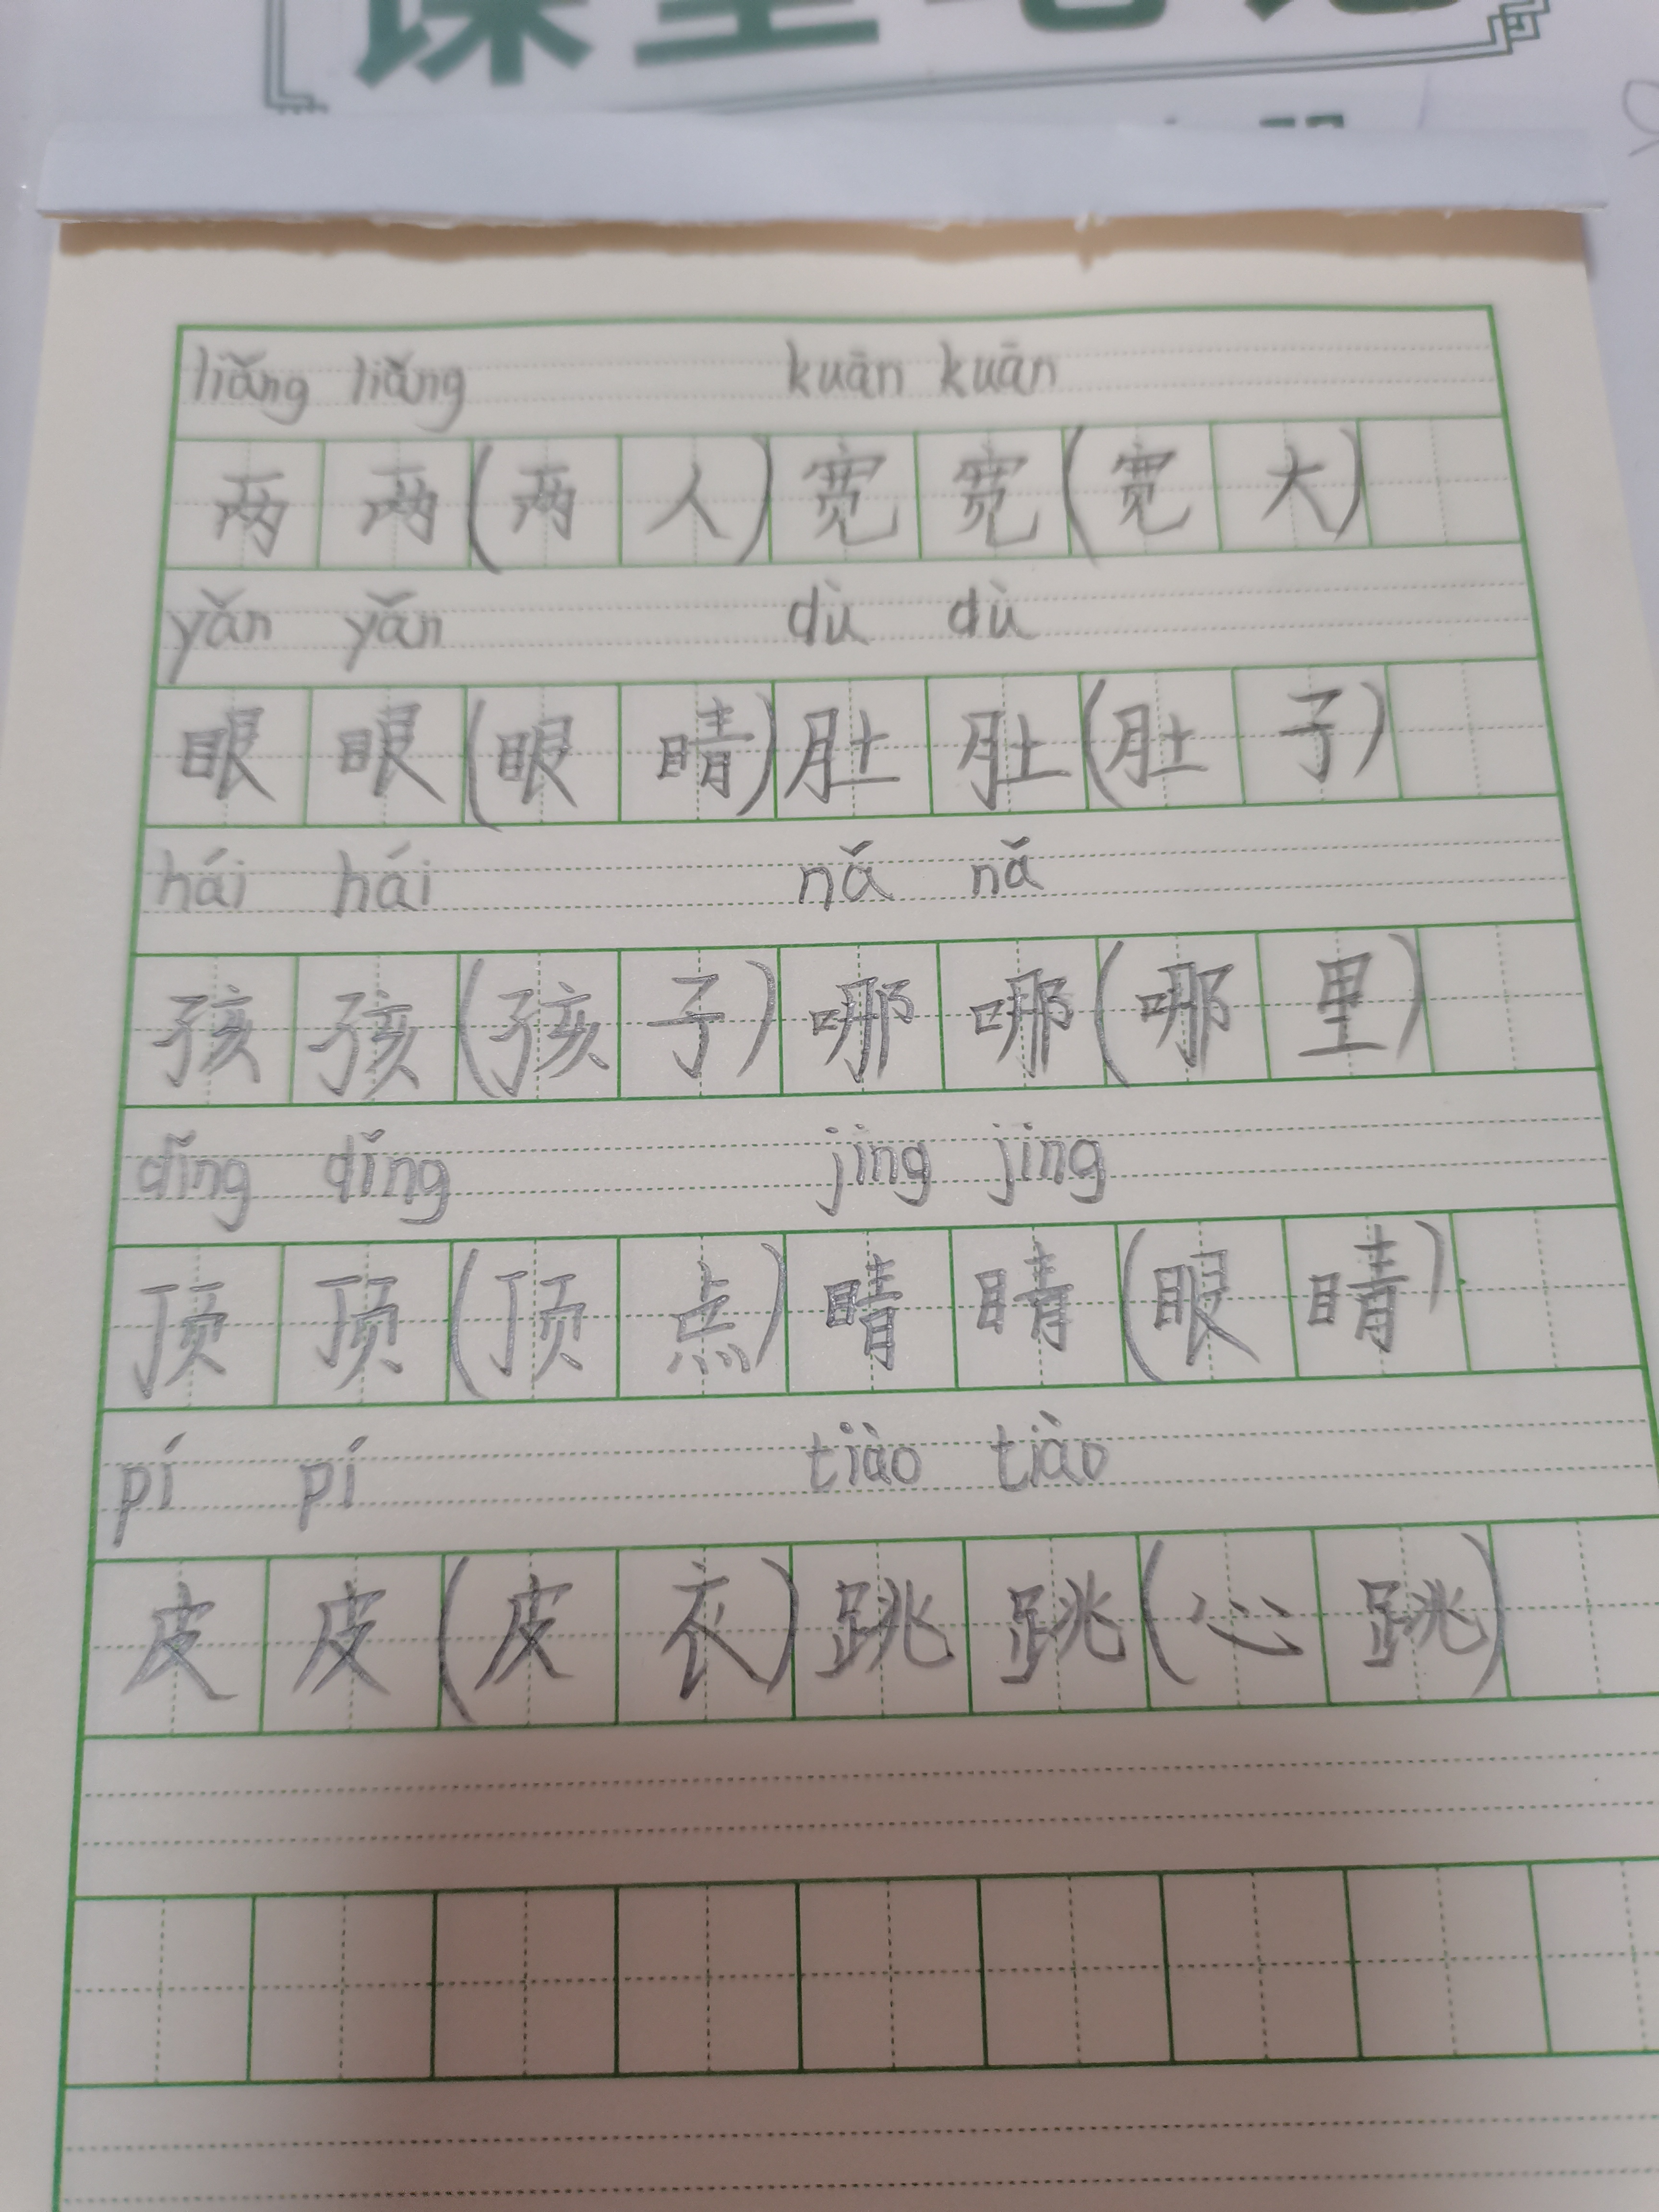 课堂笔记
liǎng liǎng kuān kuān
两两(两人)宽宽(宽大)
yǎn yǎn dù dù
眼眼(眼睛)肚肚(肚子)
hái hái nǎ nǎ
孩孩(孩子)哪哪(哪里)
dǐng dǐng jing jing
顶顶(顶点)睛睛(眼睛)
pí pí tiào tiào
皮皮(皮衣)跳跳(心跳)